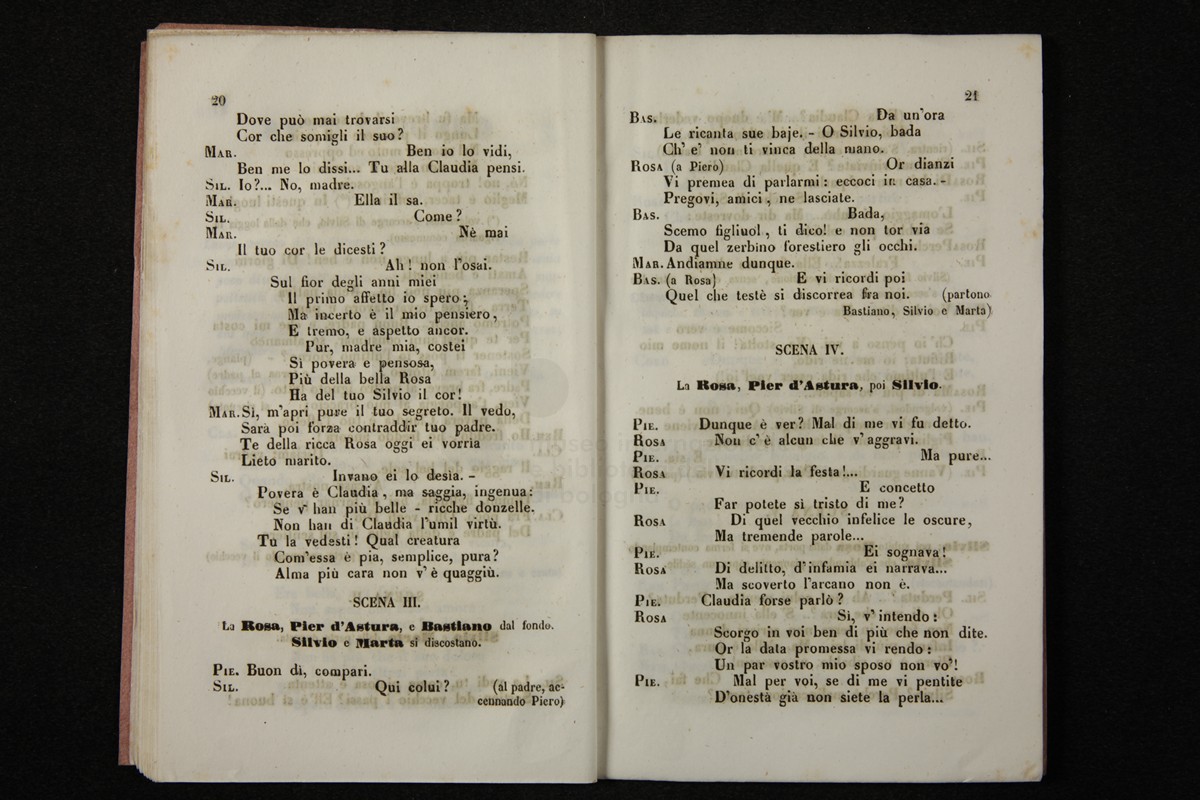 20
Dove può mai trovarsi
Cor che somigli il suo?
MAR. Ben io lo vidi,
Ben me lo dissi... Tu alla Claudia pensi.
SIL. Io?... No, madre.
MAR. Ella il sa.
SIL. Come?
MAR. Nè mai
Il tuo cor le dicesti?
SIL. Ah! non l'osai.
Sul fior degli anni miei
Il primo affetto io spero;
Ma incerto è il mio pensiero,
E tremo, e aspetto ancor.
Pur, madre mia, costei
Sì povera e pensosa,
Più della bella Rosa
Ha del tuo Silvio il cor!
MAR. Sì, m'apri pure il tuo segreto. Il vedo,
Sarà poi forza contraddir tuo padre.
Te della ricca Rosa oggi ei vorria
Lieto marito.
SIL. Invano ei lo desìa. -
Povera è Claudia, ma saggia, ingenua:
Se v' han più belle - ricche donzelle.
Non han di Claudia l'umil virtù.
Tu la vedesti! Qual creatura
Com'essa è pia, semplice, pura?
Alma più cara non v'è quaggiù.
SCENA III.
La Rosa, Pier d'Astura, e Bastiano dal fondo.
Silvio e Marta si discostano.
PIE. Buon dì, compari.
SIL. Qui colui? (al padre, ac-
cennando Piero)
21
BAS. Da un'ora
Le ricanta sue baje. - O Silvio, bada
Ch' e' non ti vinca della mano.
ROSA (a Piero) Or dianzi
Vi premea di parlarmi: eccoci in casa. -
Pregovi, amici, ne lasciate.
BAS. Bada,
Scemo figliuol, ti dico! e non tor via
Da quel zerbino forestiero gli occhi.
MAR. Andiamne dunque.
BAS. (a Rosa) E vi ricordi poi
Quel che testè si discorrea fra noi. (partono
Bastiano, Silvio e Marta)
SCENA IV.
La Rosa, Pier d'Astura, poi Silvio.
PIE. Dunque è ver? Mal di me vi fu detto.
ROSA Non c' è alcun che v' aggravi.
PIE. Ma pure...
ROSA Vi ricordi la festa!...
PIE. E concetto
Far potete sì tristo di me?
ROSA Di quel vecchio infelice le oscure,
Ma tremende parole...
PIE. Ei sognava!
ROSA Di delitto, d'infamia ei narrava...
Ma scoverto l'arcano non è.
PIE. Claudia forse parlò?
ROSA Sì, v' intendo:
Scorgo in voi ben di più che non dite.
Or la data promessa vi rendo:
Un par vostro mio sposo non vo'!
PIE. Mal per voi, se di me vi pentite
D'onestà già non siete la perla...